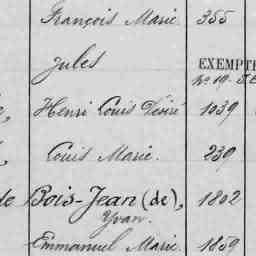 François Marie 355
Jules EXEMPTÉ
Henri Louis Désiré 1039
Louis Marie. 239
de Bois-Jean (de), 1802
Yvan.
Emmanuel Marie 1859